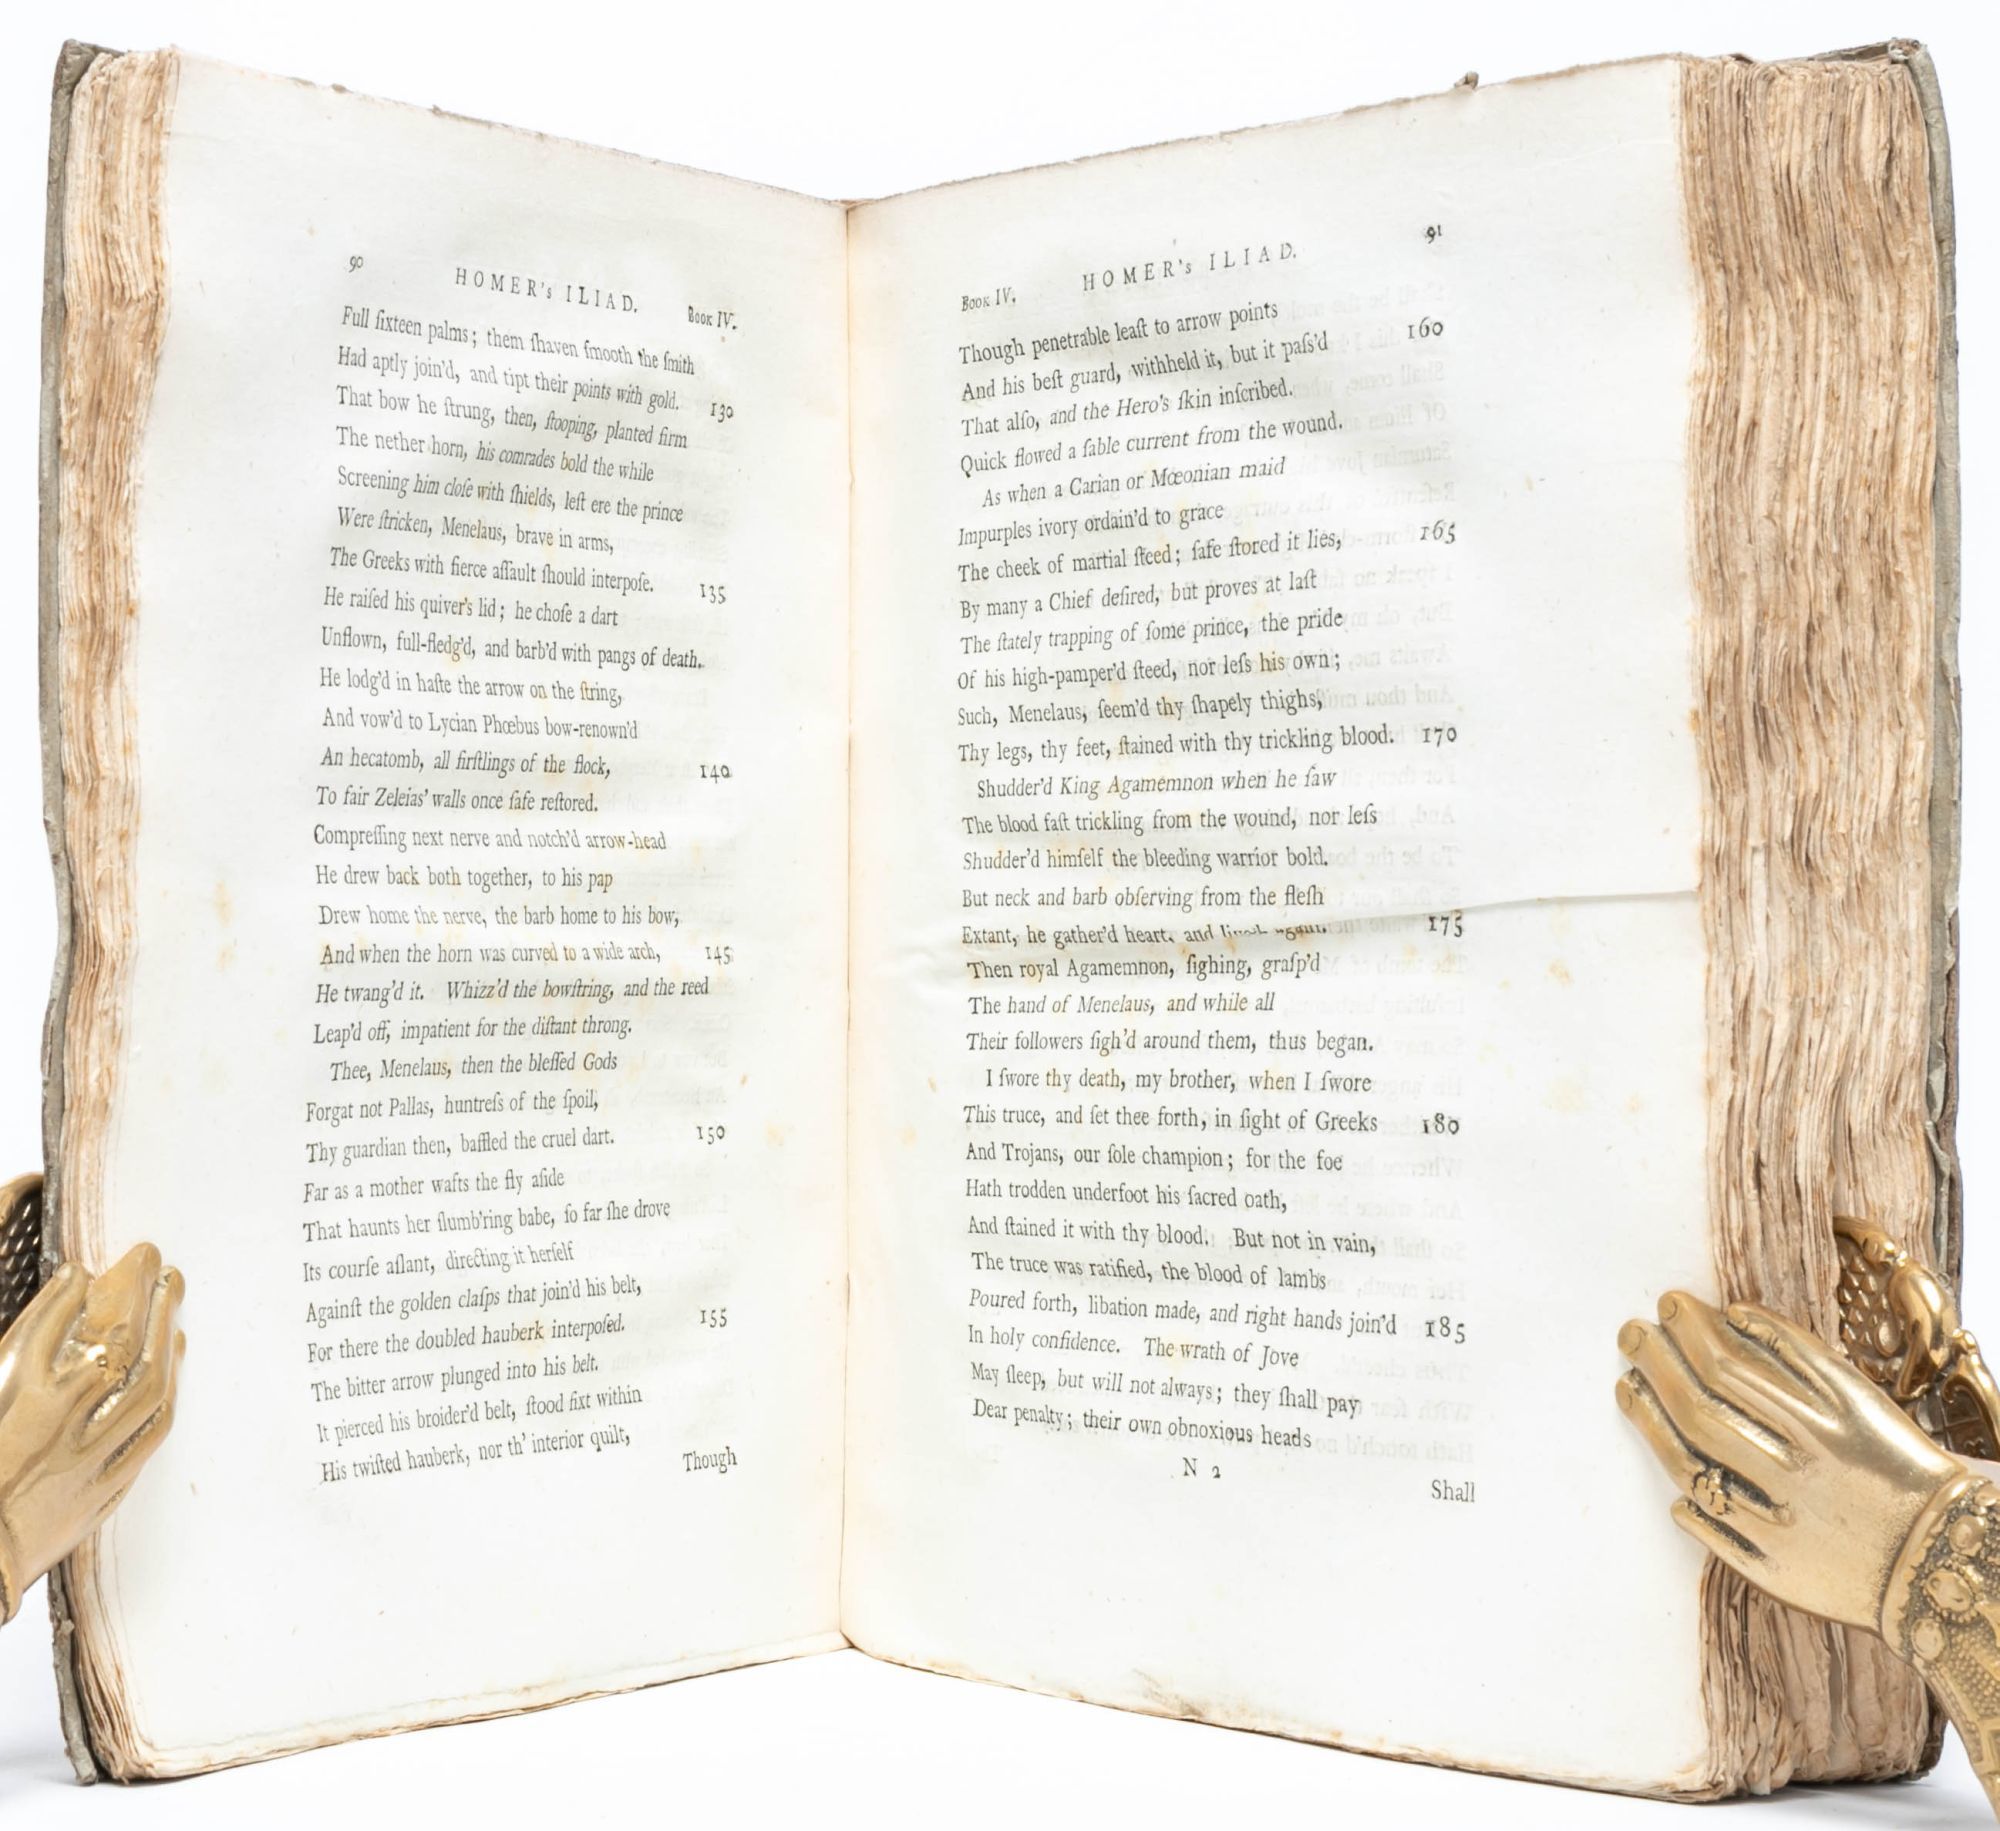 90
HOMER's ILIAD.
Book IV.
Full ſixteen palms; them ſhaven ſmooth the ſmith
Had aptly join'd, and tipt their points with gold. 130
That bow he ſtrung, then, ſtooping, planted firm
The nether horn, his comrades bold the while
Screening him cloſe with ſhields, leſt ere the prince
Were ſtricken, Menelaus, brave in arms,
The Greeks with fierce aſſault ſhould interpoſe. 135
He raiſed his quiver's lid; he choſe a dart
Unflown, full-fledg'd, and barb'd with pangs of death.
He lodg'd in haſte the arrow on the ſtring,
And vow'd to Lycian Phœbus bow-renown'd
An hecatomb, all firſtlings of the flock, 140
To fair Zeleias' walls once ſafe reſtored.
Compreſſing next nerve and notch'd arrow-head
He drew back both together, to his pap
Drew home the nerve, the barb home to his bow,
And when the horn was curved to a wide arch, 145
He twang'd it. Whizz'd the bowſtring, and the reed
Leap'd off, impatient for the diſtant throng.
Thee, Menelaus, then the bleſſed Gods
Forgat not Pallas, huntreſs of the ſpoil,
Thy guardian then, baffled the cruel dart. 150
Far as a mother wafts the fly aſide
That haunts her ſlumb'ring babe, ſo far ſhe drove
Its courſe aſlant, directing it herſelf
Againſt the golden claſps that join'd his belt,
For there the doubled hauberk interpoſed. 155
The bitter arrow plunged into his belt.
It pierced his broider'd belt, ſtood fixt within
His twiſted hauberk, nor th' interior quilt,
Though
Book IV.
HOMER's ILIAD.
91
Though penetrable leaſt to arrow points
And his beſt guard, withheld it, but it paſs'd 160
That alſo, and the Hero's ſkin inſcribed.
Quick flowed a ſable current from the wound.
As when a Carian or Mœonian maid
Impurples ivory ordain'd to grace
The cheek of martial ſteed; ſafe ſtored it lies, 165
By many a Chief deſired, but proves at laſt
The ſtately trapping of ſome prince, the pride
Of his high-pamper'd ſteed, nor leſs his own;
Such, Menelaus, ſeem'd thy ſhapely thighs,
Thy legs, thy feet, ſtained with thy trickling blood. 170
Shudder'd King Agamemnon when he ſaw
The blood faſt trickling from the wound, nor leſs
Shudder'd himſelf the bleeding warrior bold.
But neck and barb obſerving from the fleſh
Extant, he gather'd heart, and again. 175
Then royal Agamemnon, ſighing, graſp'd
The hand of Menelaus, and while all
Their followers ſigh'd around them, thus began.
I ſwore thy death, my brother, when I ſwore
This truce, and ſet thee forth, in ſight of Greeks 180
And Trojans, our ſole champion; for the foe
Hath trodden underfoot his ſacred oath,
And ſtained it with thy blood. But not in vain,
The truce was ratified, the blood of lambs
Poured forth, libation made, and right hands join'd 185
In holy confidence. The wrath of Jove
May ſleep, but will not always; they ſhall pay
Dear penalty; their own obnoxious heads
N 2
Shall